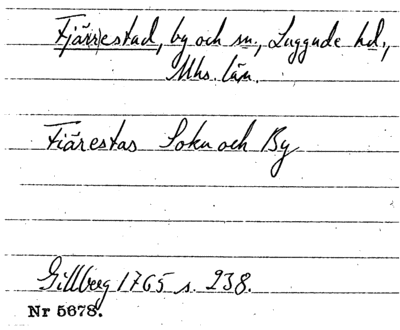 Fjär(r)estad, by och sn., Luggude hd.,
Mhs. län.
Fiärestas Sokn och By
Gillberg 1765 s. 238.
Nr 5678.